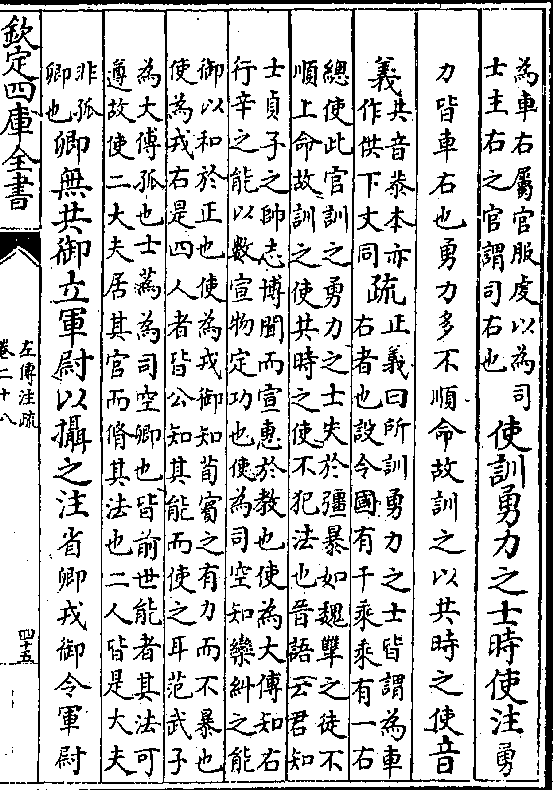 為車右屬官服虔以為司
士主右之官謂司右也
使訓勇力之士時使注勇
力皆車右也勇力多不順命故訓之以共時之使音
義共音恭本亦
作供下文同
疏正義曰所訓勇力之士皆謂為車
右者也設令國有千乘乘有一右
總使此官訓之勇力之士失於彊暴如魏犨之徒不
順上命故訓之使共時之使不犯法也晉語云君知
士貞子之帥志博聞而宣惠於教也使為大傅知右
行辛之能以數宣物定功也使為司空知欒糾之能
御以和於正也使為戎御知荀賓之有力而不暴也
使為戎右是四人者皆公知其能而使之耳范武子
為大傅孤也士蔿為司空卿也皆前世能者其法可
遵故使二大夫居其官而脩其法也二人皆是大夫
非孤
卿也
卿無共御立軍尉以攝之注省卿戎御令軍尉
欽定四庫全書
左傳注疏
卷二十八
四十五